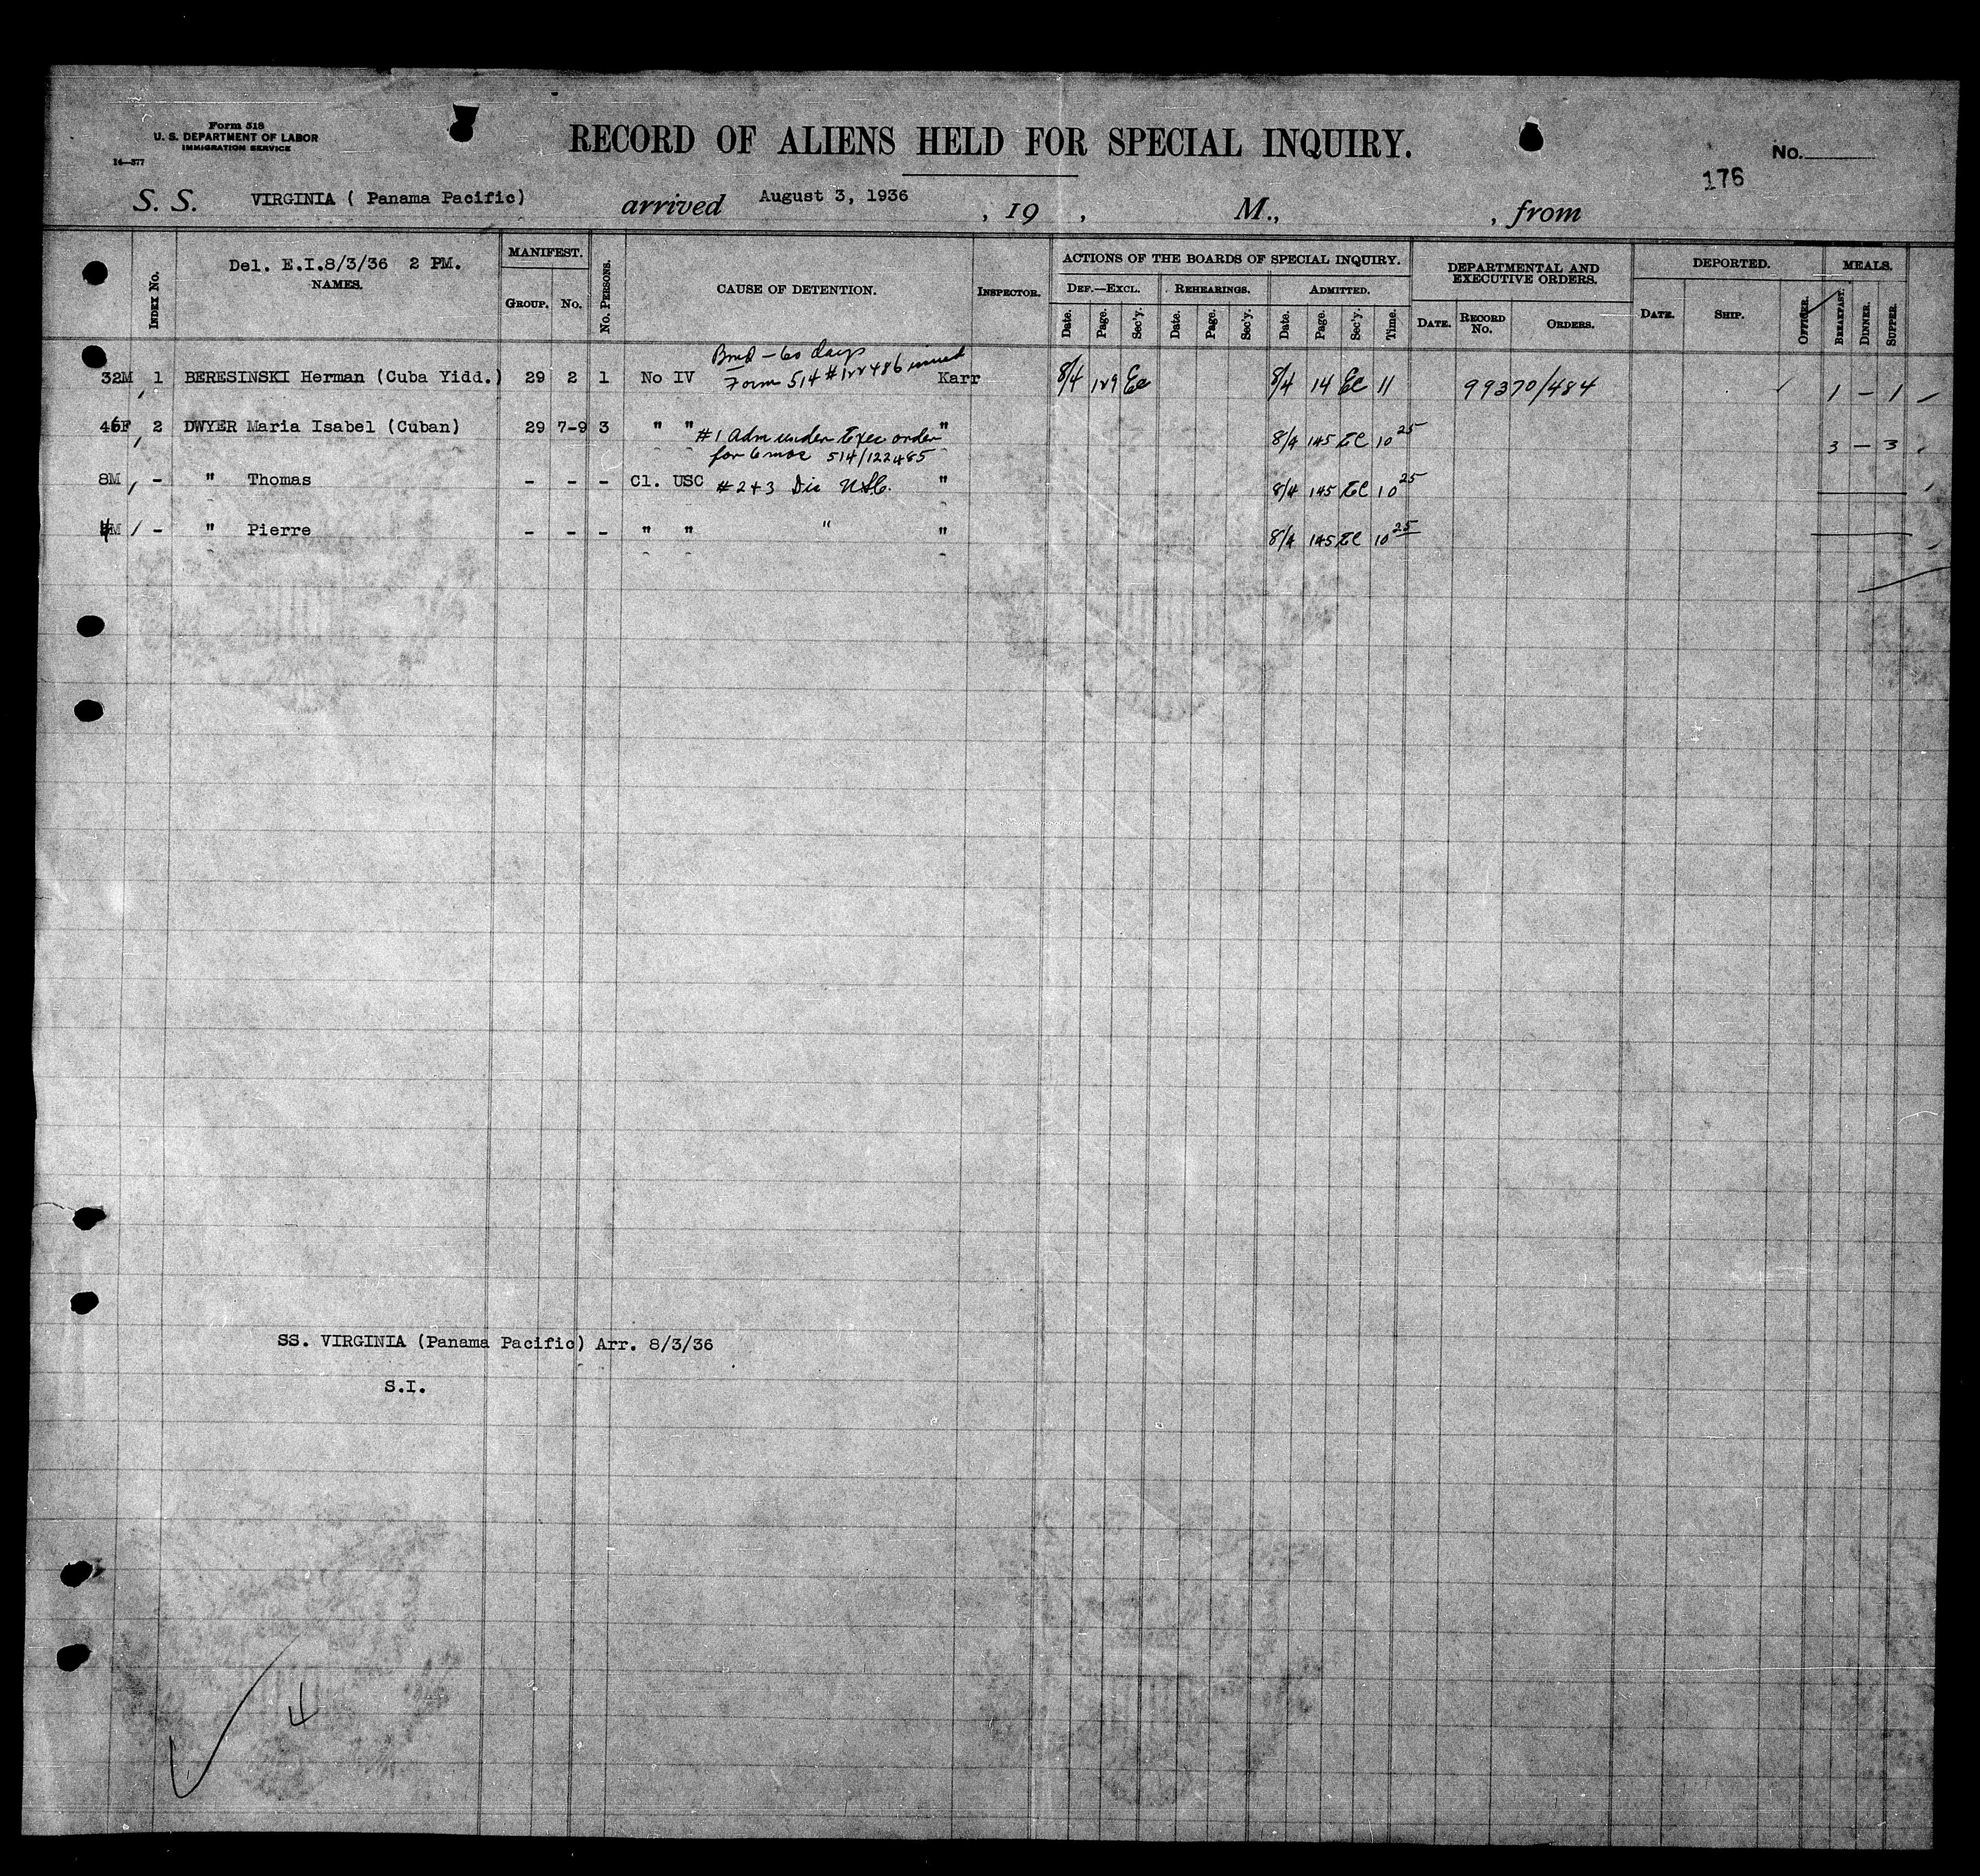 Form 518
U. S. DEPARTMENT OF LABOR
IMMIGRATION SERVICE
14—577
RECORD OF ALIENS HELD FOR SPECIAL INQUIRY.
No.
176
S. S. VIRGINIA ( Panama Pacific) arrived August 3, 1936 , 19 , M., , from
Index No.
Del. E.I.8/3/36 2 PM.
NAMES.
MANIFEST.
Group. No.
No. Persons.
CAUSE OF DETENTION.
Inspector.
ACTIONS OF THE BOARDS OF SPECIAL INQUIRY.
Def.—Excl. Rehearings. Admitted.
Date. Page. Sec'y. Date. Page. Sec'y. Date. Page. Sec'y. Time.
DEPARTMENTAL AND
EXECUTIVE ORDERS.
Date. Record No. Orders.
DEPORTED.
Date. Ship. Officer.
MEALS.
Breakfast. Dinner. Supper.
Bond - 60 days
Form 514 #122486 issued
32M 1 BERESINSKI Herman (Cuba Yidd.) 29 2 1 No IV Karr 8/4 129 Ec 8/4 14 Ec 11 99370/484 1 – 1
F 2 DWYER Maria Isabel (Cuban) 29 7-9 3 " " #1 Adm under Exec order " 8/4 145 EC 10 25 3 – 3
for 6 mos 514/122485
8M - " Thomas - - - Cl. USC #2+3 Dis USC. " 8/4 145 EC 10 25
M - " Pierre - - - " " " " 8/4 145 EC 10 25
SS. VIRGINIA (Panama Pacific) Arr. 8/3/36
S.I.
4